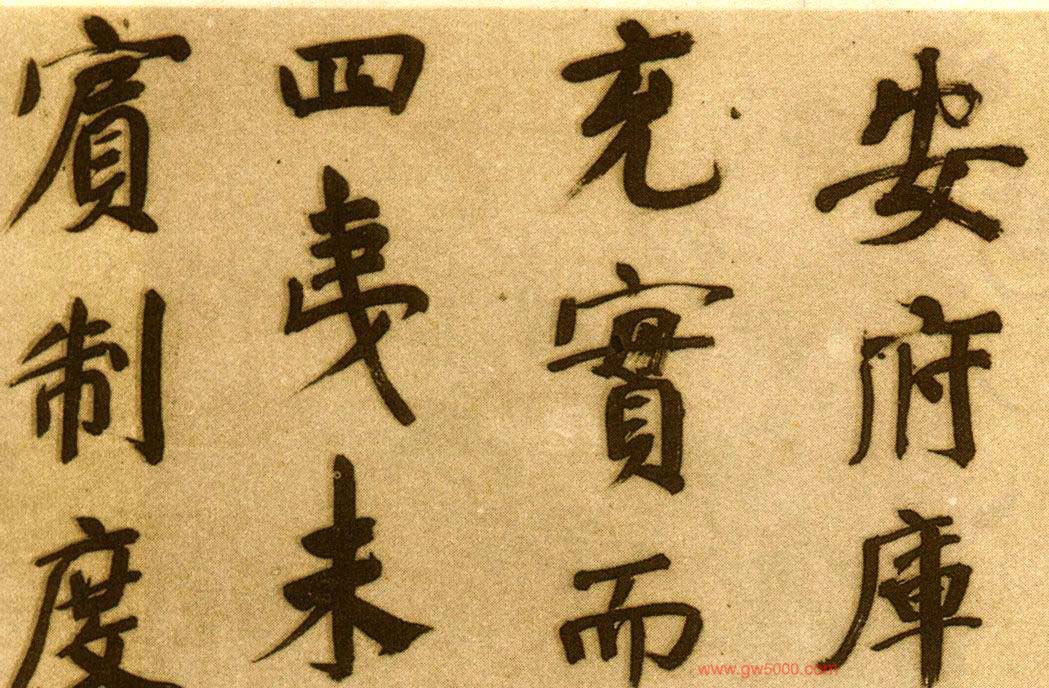 安府庫
充實而
四夷未
賓制度
www.gw5000.com